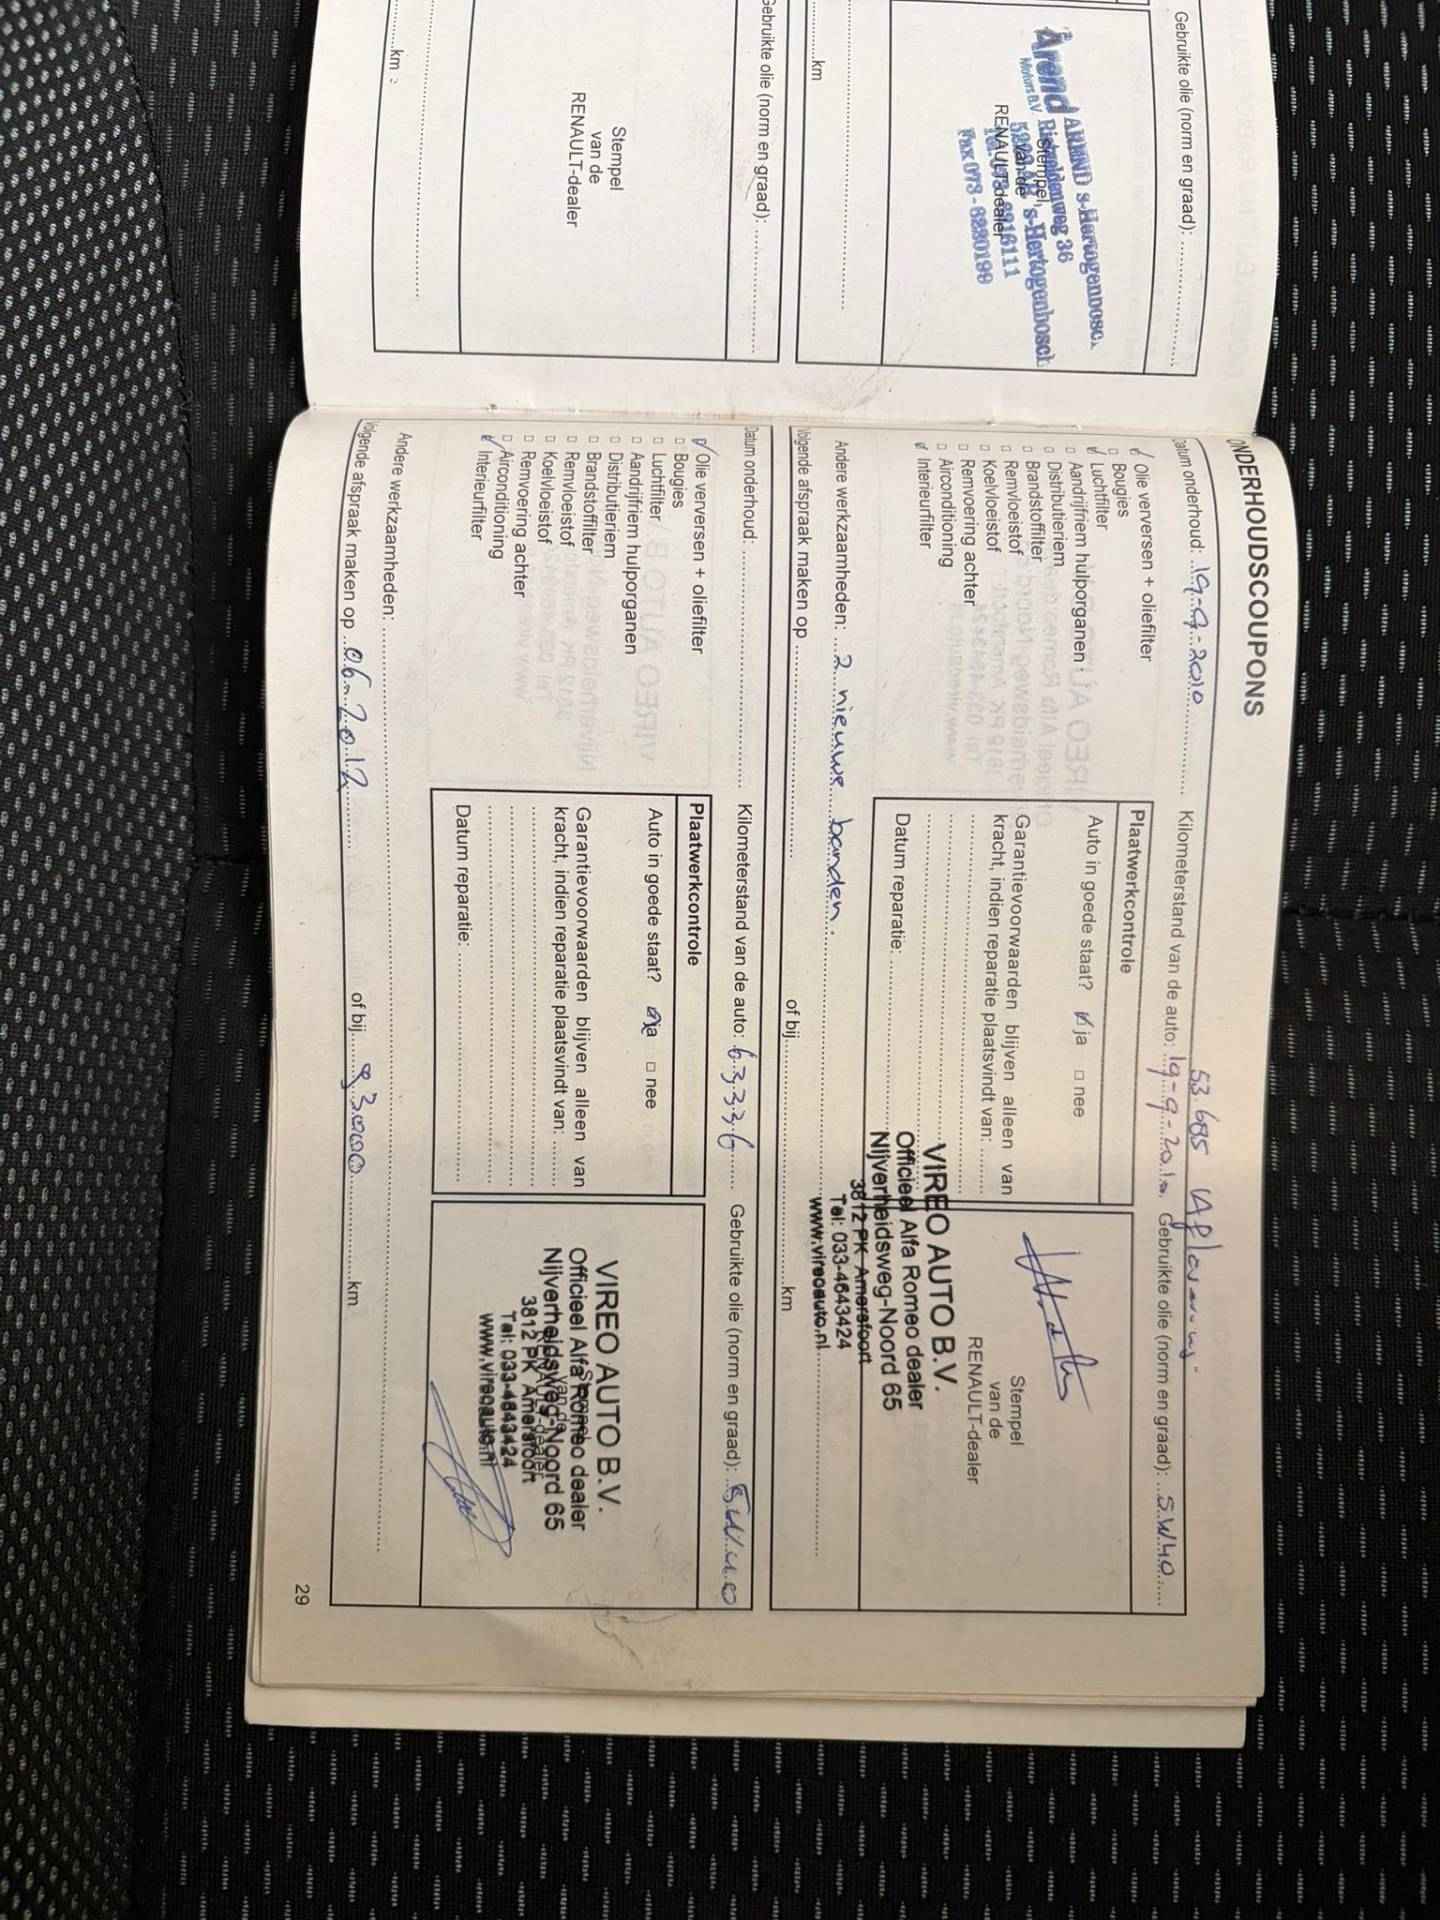 Gebruikte olie (norm en graad): ........................
Arend AREND s-Hertogenbosch
Motors B.V. Rietveldenweg 36
's-Hertogenbosch
Fax 073 - 6230199
Stempel
van de
RENAULT-dealer
....................km
Gebruikte olie (norm en graad): ........................
Stempel
van de
RENAULT-dealer
....................km
ONDERHOUDSCOUPONS
53.685
Datum onderhoud: 19-9-2010 Kilometerstand van de auto: 19-9-2010 Gebruikte olie (norm en graad): 5W40
Olie verversen + oliefilter
Bougies
Luchtfilter
Aandrijfriem hulporganen
Distributieriem
Brandstoffilter
Remvloeistof
Koelvloeistof
Remvoering achter
Airconditioning
Interieurfilter
Plaatwerkcontrole
Auto in goede staat? ja nee
Garantievoorwaarden blijven alleen van
kracht, indien reparatie plaatsvindt van: ........
Datum reparatie: ........................
Stempel
van de
RENAULT-dealer
VIREO AUTO B.V.
Officieel Alfa Romeo dealer
Nijverheidsweg-Noord 65
3812 PK Amersfoort
Tel: 033-4643424
www.vireoauto.nl
Andere werkzaamheden: 2 nieuwe banden.
Volgende afspraak maken op ........................ of bij........................km
Datum onderhoud: ........................ Kilometerstand van de auto: 63336 Gebruikte olie (norm en graad): 5W40
Olie verversen + oliefilter
Bougies
Luchtfilter
Aandrijfriem hulporganen
Distributieriem
Brandstoffilter
Remvloeistof
Koelvloeistof
Remvoering achter
Airconditioning
Interieurfilter
Plaatwerkcontrole
Auto in goede staat? ja nee
Garantievoorwaarden blijven alleen van
kracht, indien reparatie plaatsvindt van: ........
Datum reparatie: ........................
Stempel
van de
RENAULT-dealer
VIREO AUTO B.V.
Officieel Alfa Romeo dealer
Nijverheidsweg-Noord 65
3812 PK Amersfoort
Tel: 033-4643424
www.vireoauto.nl
Andere werkzaamheden: ........................
Volgende afspraak maken op 06-2012 of bij 93000 km
29